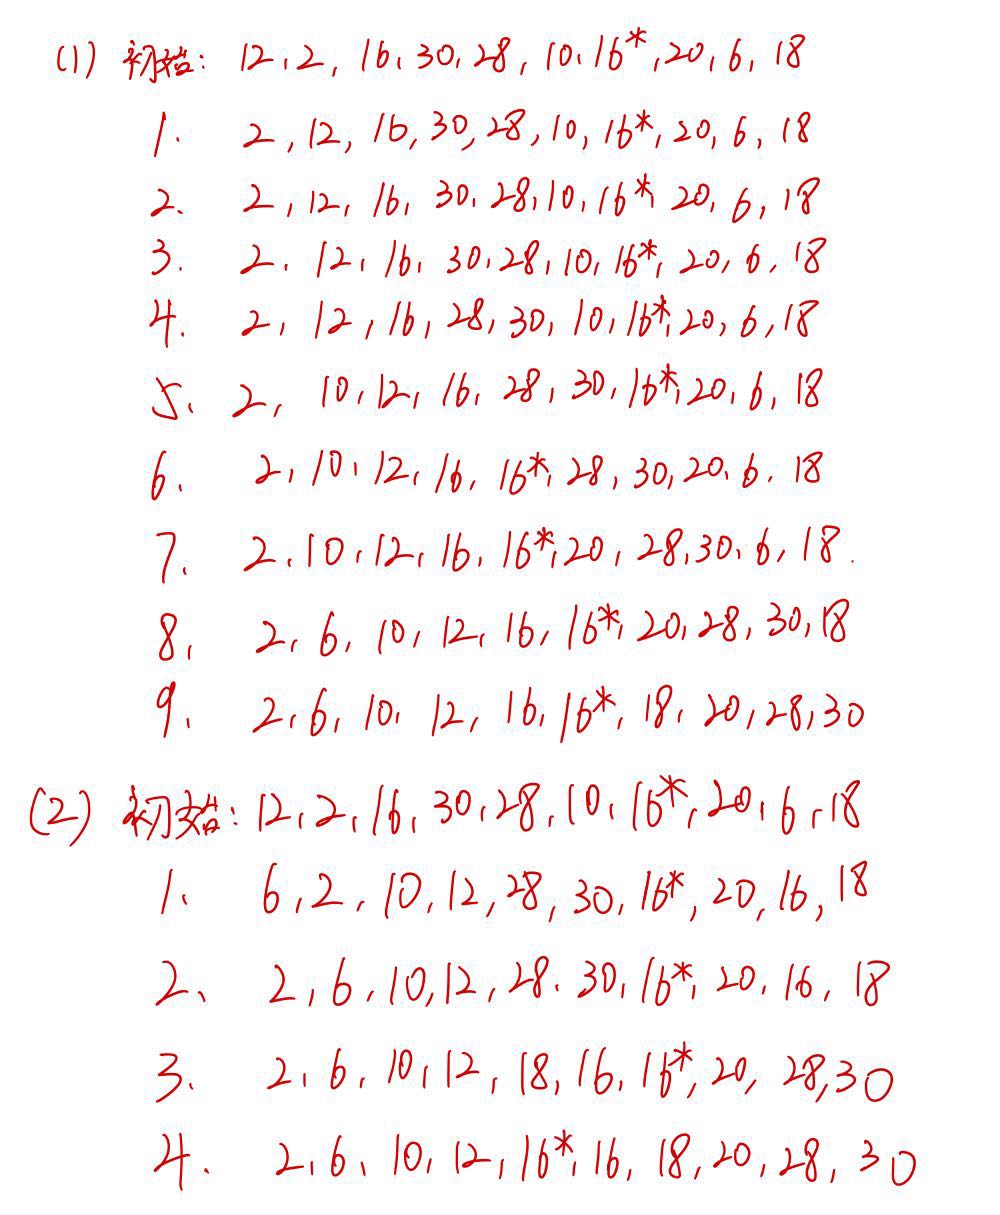 (1) 初始: 12, 2, 16, 30, 28, 10, 16*, 20, 6, 18
1. 2, 12, 16, 30, 28, 10, 16*, 20, 6, 18
2. 2, 12, 16, 30, 28, 10, 16*, 20, 6, 18
3. 2, 12, 16, 30, 28, 10, 16*, 20, 6, 18
4. 2, 12, 16, 28, 30, 10, 16*, 20, 6, 18
5. 2, 10, 12, 16, 28, 30, 16*, 20, 6, 18
6. 2, 10, 12, 16, 16*, 28, 30, 20, 6, 18
7. 2, 10, 12, 16, 16*, 20, 28, 30, 6, 18.
8. 2, 6, 10, 12, 16, 16*, 20, 28, 30, 18
9. 2, 6, 10, 12, 16, 16*, 18, 20, 28, 30
(2) 初始: 12, 2, 16, 30, 28, 10, 16*, 20, 6, 18
1. 6, 2, 10, 12, 28, 30, 16*, 20, 16, 18
2. 2, 6, 10, 12, 28, 30, 16*, 20, 16, 18
3. 2, 6, 10, 12, 18, 16, 16*, 20, 28, 30
4. 2, 6, 10, 12, 16*, 16, 18, 20, 28, 30